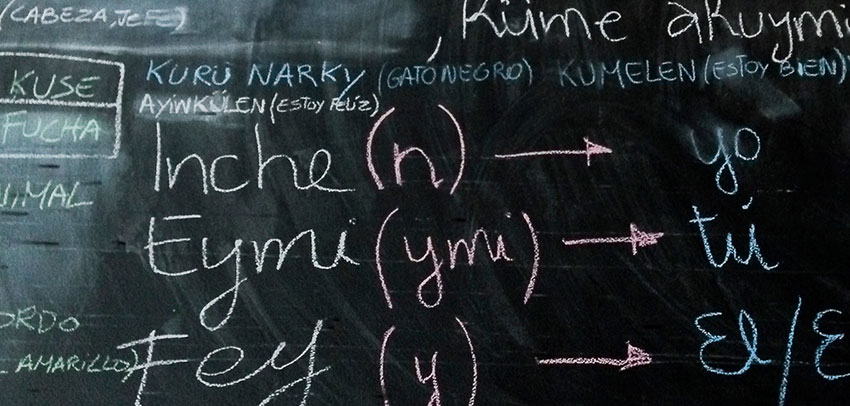 (CABEZA, JEFE)
, Küme akuymi
KUSE
FUCHA
NIMAL
ORDO
AMARILLO)
KURÜ NARKY (GATO NEGRO) KUMELEN (ESTOY BIEN)
AYINKÜLEN (ESTOY FELIZ)
Inche (n) → yo
Eymi (ymi) → tú
Fey (y) → El/E